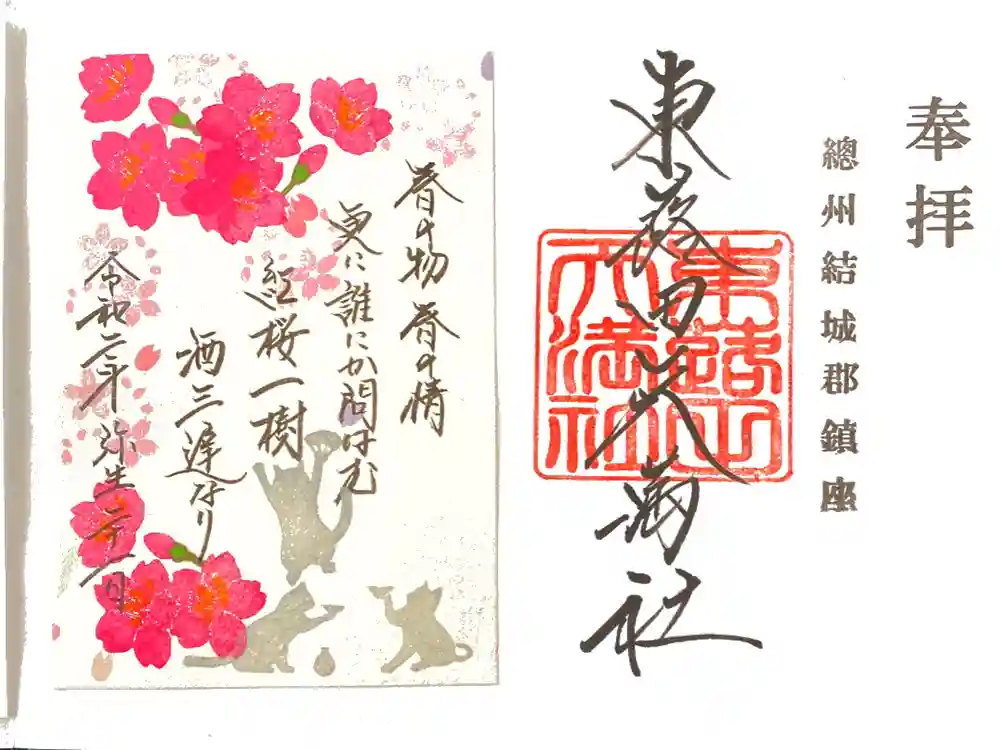 奉拝
總州結城郡鎮座
東蕗田天満社
東蕗田
天満社
春の物 春の情
更に誰にか問はむ
紅桜一樹
酒三遅なり
令和 年 弥生